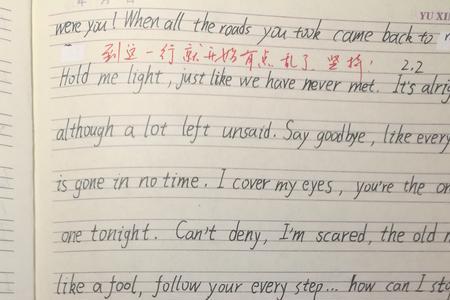 年 月 日
YU XI
were you! When all the roads you took came back to
到这一行就开始有点乱了 坚持! 2.2
Hold me light, just like we have never met. It's alrig
although a lot left unsaid. Say goodbye, like every
is gone in no time. I cover my eyes, you're the on
one tonight. Can't deny, I'm scared, the old m
like a fool, follow your every step... how can I sto